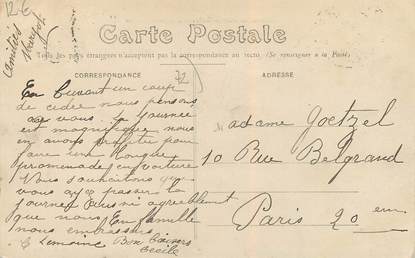 12€
Amitiés
Carte Postale
Tous les pays étrangers n'acceptent pas la correspondance au recto (Se renseigner à la Poste)
CORRESPONDANCE
72
ADRESSE
En buvant un coup
de cidre nous pensons
a vous. La journée
est magnifique nous
en avons profité pour
faire une longue
promenade en voiture
Nous souhaitons que
vous ayez passer la
journée aussi agreablement
que nous. En famille
nous embrassons
E Lemoine Bon baisers
Cecile
Madame Goetzel
10 Rue Belgrand
Paris 20 em